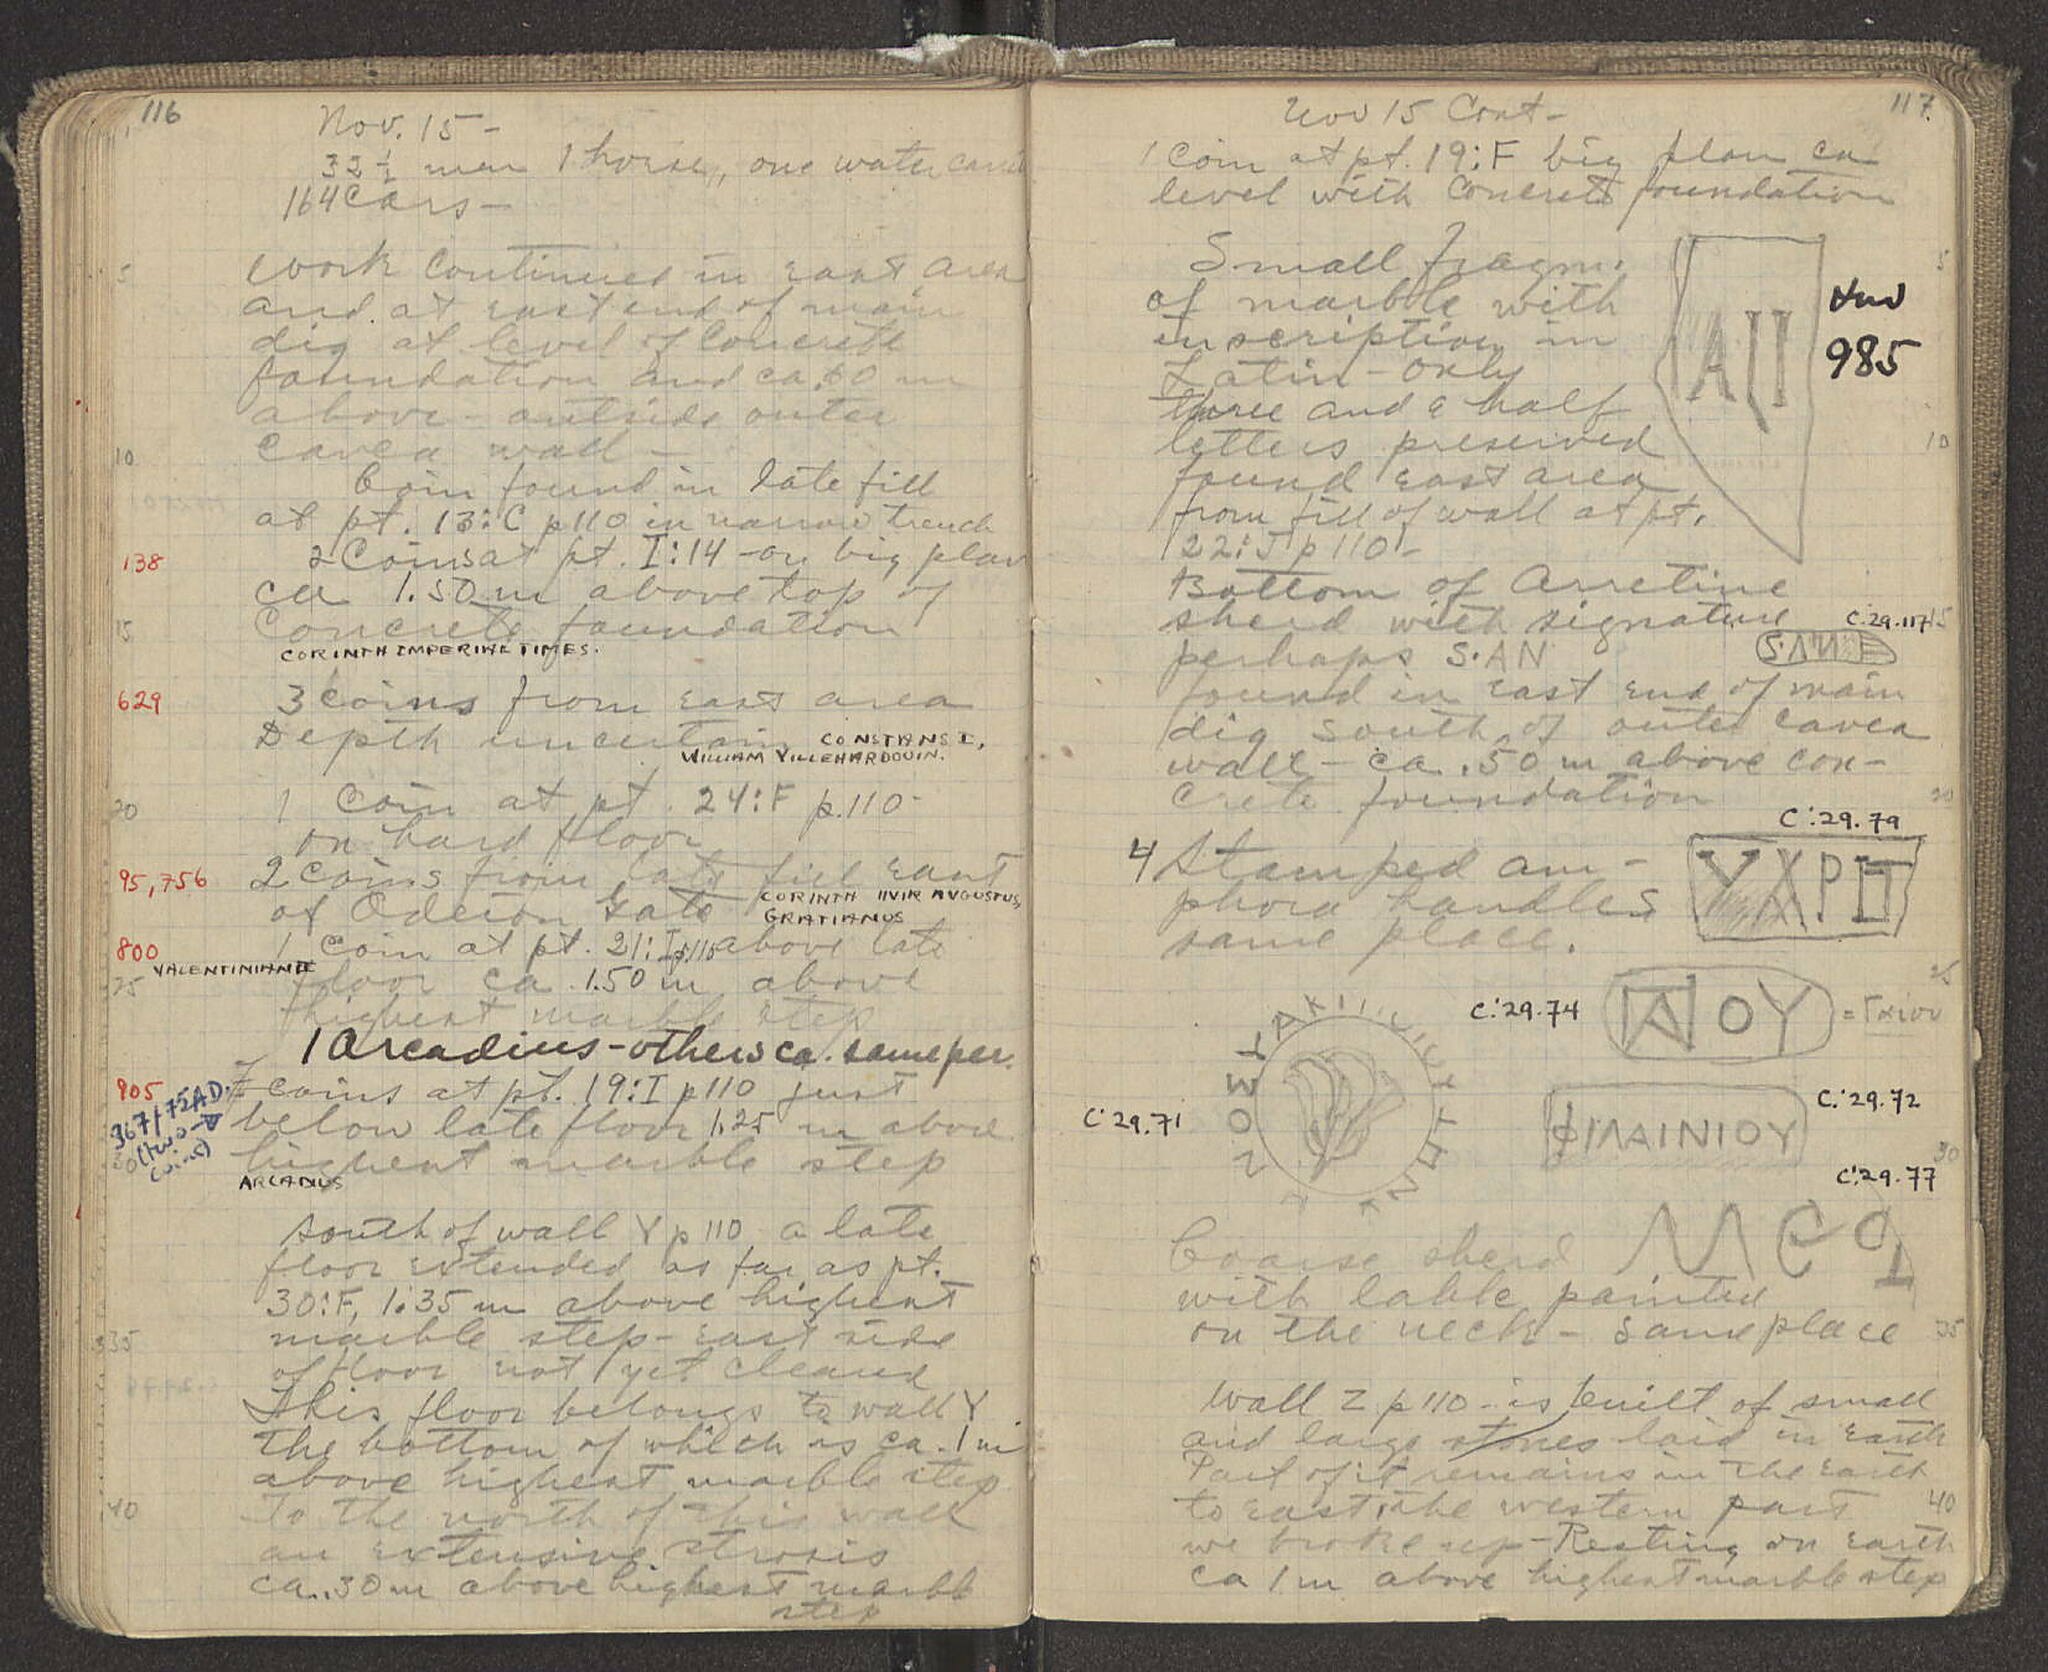 116
Nov. 15 -
32 ½ men 1 horse, one water
164 Cars -
Work continued in east area
and at east end of main
dig at level of Concrete
foundation and ca .60 m
above - outside outer
Cavea wall -
Coin found in late fill
at pt. 13:C p110 in narrow trench
138 2 Coins at pt. I:14 - on big plan
ca 1.50 m above top of
15 Concrete foundation
CORINTH IMPERIAL TIMES.
629 3 coins from east area
Depth uncertain CONSTANS I,
WILLIAM VILLEHARDOUIN.
20 1 Coin at pt. 24:F p.110 -
on hard floor
95,756 2 Coins from late fill east
of Odeion gate CORINTH IIVIR AVGUSTUS,
GRATIANUS
800 1 coin at pt. 21:I p110 above late
VALENTINIAN II
25 floor ca 1.50 m above
highest marble step
1 Arcadius - others ca. same per.
905 7 coins at pt. 19:I p110 just
367/75 AD. (two coins)
below late floor 1.25 m above
highest marble step
ARCADIUS
South of wall Y p110 a late
floor extended as far as pt.
30:F, 1.35 m above highest
35 marble step - east side
of floor not yet cleared
This floor belongs to wall Y
the bottom of which is ca. 1 m
above highest marble step
40 To the north of this wall
an extensive strosis
ca .30 m above highest marble
step
117.
Nov 15 Cont -
1 Coin at pt. 19:F big plan ca
level with Concrete foundation
Small fragm. 5
of marble with
inscription in
Latin - Only
three and a half
letters preserved 10
found east area
from fill of wall at pt.
22:J p110 -
AII
985
Bottom of Arretine
sherd with signature C.29.117 15
perhaps S·AN
found in east end of main
dig south of outer cavea
wall - ca .50 m above con-
crete foundation 20
4 Stamped am-
phora handles
same place.
C:29.79
C:29.74 OY = Γαίου
25
C:29.71
C:29.72
ΦΙΛΑΙΝΙΟΥ
30
C:29.77
Coarse sherd
with lable painted
on the neck - same place 35
Wall Z p110 - is built of small
and large stones laid in earth
Part of it remains in the earth
to east, the western part 40
we broke up - Resting on earth
ca 1 m above highest marble step